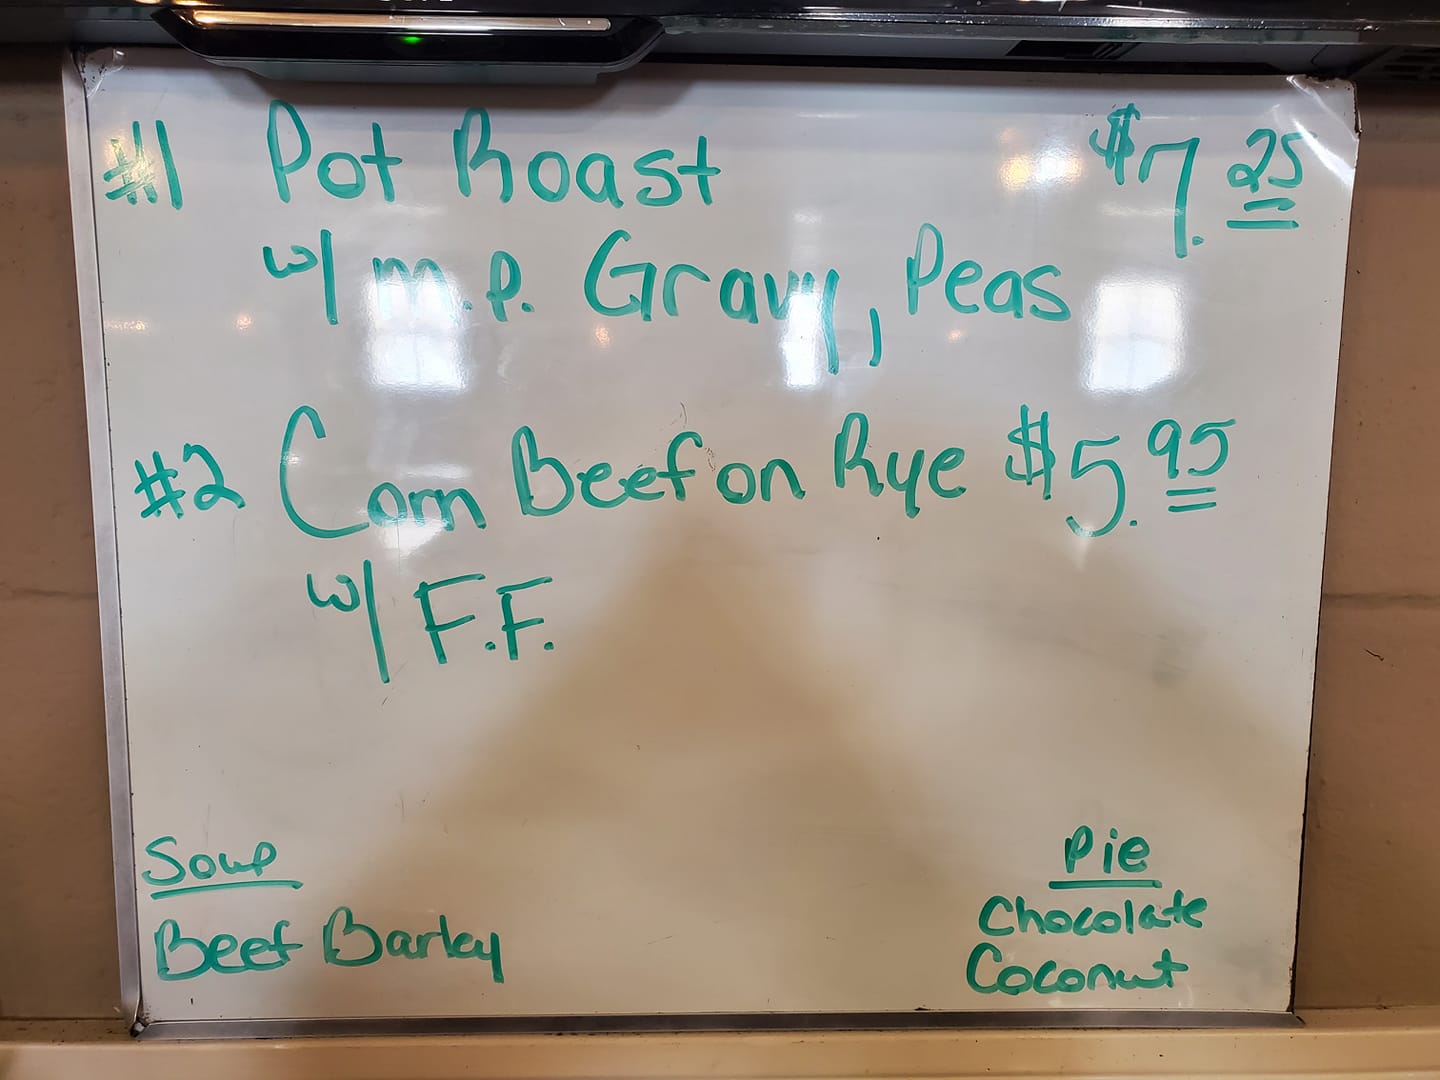 #1 Pot Roast $7.25
w/ m.p. Gravy, Peas
#2 Corn Beef on Rye $5.95
w/ F.F.
Soup
Beef Barley
Pie
Chocolate
Coconut